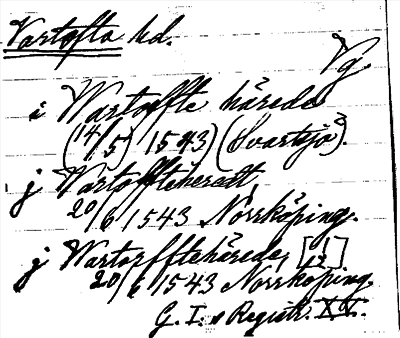 Vartofta hd.
Vg
i Wartoffte härede
(14/5) 1543) (Svartsjö).
j Vartoffthéneradt
20/6 1543 Norrköping.
j Wartorfftehärede, [!]
20/6 1543 Norrköping.
G. I:s Registr. XV.